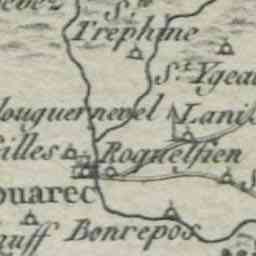 Ste
Trephine
St. Ygea
louguernevel
Lanis
illes
Roquelsien
ouarec
S
auff
Bonrepos